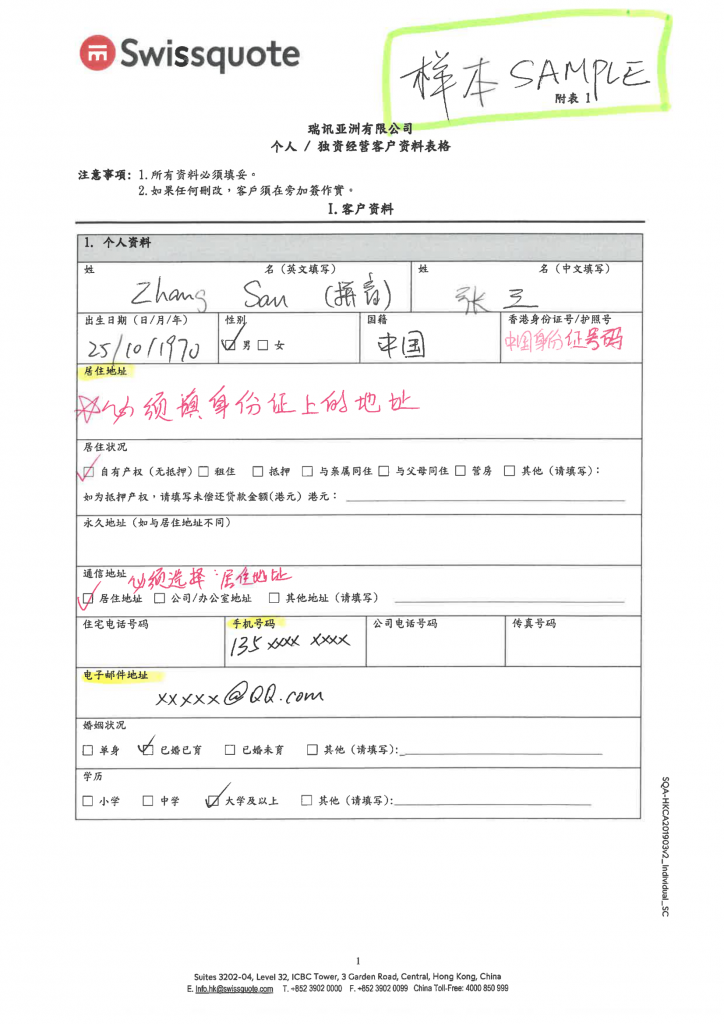 Swissquote
样本 SAMPLE
附表 1
瑞讯亚洲有限公司
个人 / 独资经营客户资料表格
注意事项: 1.所有资料必须填妥。
2.如果任何删改，客户须在旁加簽作實。
I.客户资料
1. 个人资料
姓 名（英文填写） 姓 名（中文填写）
Zhang San (拼音) 张三
出生日期（日/月/年） 性别 国籍 香港身份证号/护照号
25/10/1970 ☑ 男 ☐ 女 中国 中国身份证号码
居住地址
☆必须填身份证上的地址
居住状况
☑ 自有产权（无抵押） ☐ 租住 ☐ 抵押 ☐ 与亲属同住 ☐ 与父母同住 ☐ 营房 ☐ 其他（请填写）：
如为抵押产权，请填写未偿还贷款金额(港元) 港元：
永久地址（如与居住地址不同）
通信地址 必须选择:居住地址
☑ 居住地址 ☐ 公司/办公室地址 ☐ 其他地址（请填写）
住宅电话号码 手机号码 公司电话号码 传真号码
135 xxxx xxxx
电子邮件地址
xxxxx@QQ.com
婚姻状况
☐ 单身 ☑ 已婚已育 ☐ 已婚未育 ☐ 其他（请填写）:
学历
☐ 小学 ☐ 中学 ☑ 大学及以上 ☐ 其他（请填写）:
SQA-HKCA201903v2_Individual_SC
1
Suites 3202-04, Level 32, ICBC Tower, 3 Garden Road, Central, Hong Kong, China
E. Info.hk@swissquote.com T. +852 3902 0000 F. +852 3902 0099 China Toll-Free: 4000 850 999